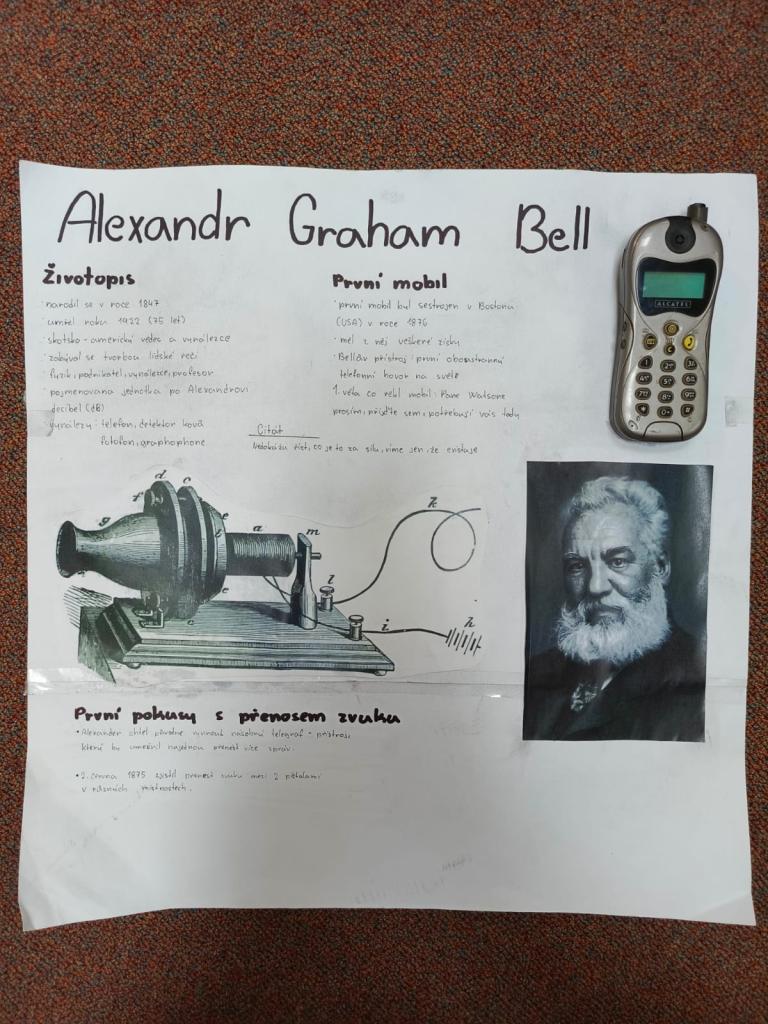 Alexandr Graham Bell
Životopis
· narodil se v roce 1847
· umřel roku 1922 (75 let)
· skotsko-americký vědec a vynálezce
· zabýval se tvorbou lidské řeči
· fyzik, podnikatel, vynálezce, profesor
· pojmenovana jednotka po Alexandrovi
decibel (dB)
· vynálezy: telefon, detektor kovů
fotofon, graphophone
První mobil
· první mobil byl sestrojen v Bostonu
(USA) v roce 1876
· měl z něj veškeré zisky
· Bellův přístroj: první obousтranný
telefonní hovor na světě
1. věta co řekl mobil: Pane Watsone
prosím, přijďte sem, potřebuji vás tady
Citát
Nedokážu říct, co je to za sílu, víme jen, že existuje
ALCATEL
d c
f e
g b a m k
l
c i h
První pokusy s přenosem zvuku
• Alexander chtěl původně vynout násobní telegraf - přístroj,
který by umožnil najednou přenést více zpráv.
• 2. června 1875 zjistil přenost zvuku mezi 2 pístalami
v různých místnostech.